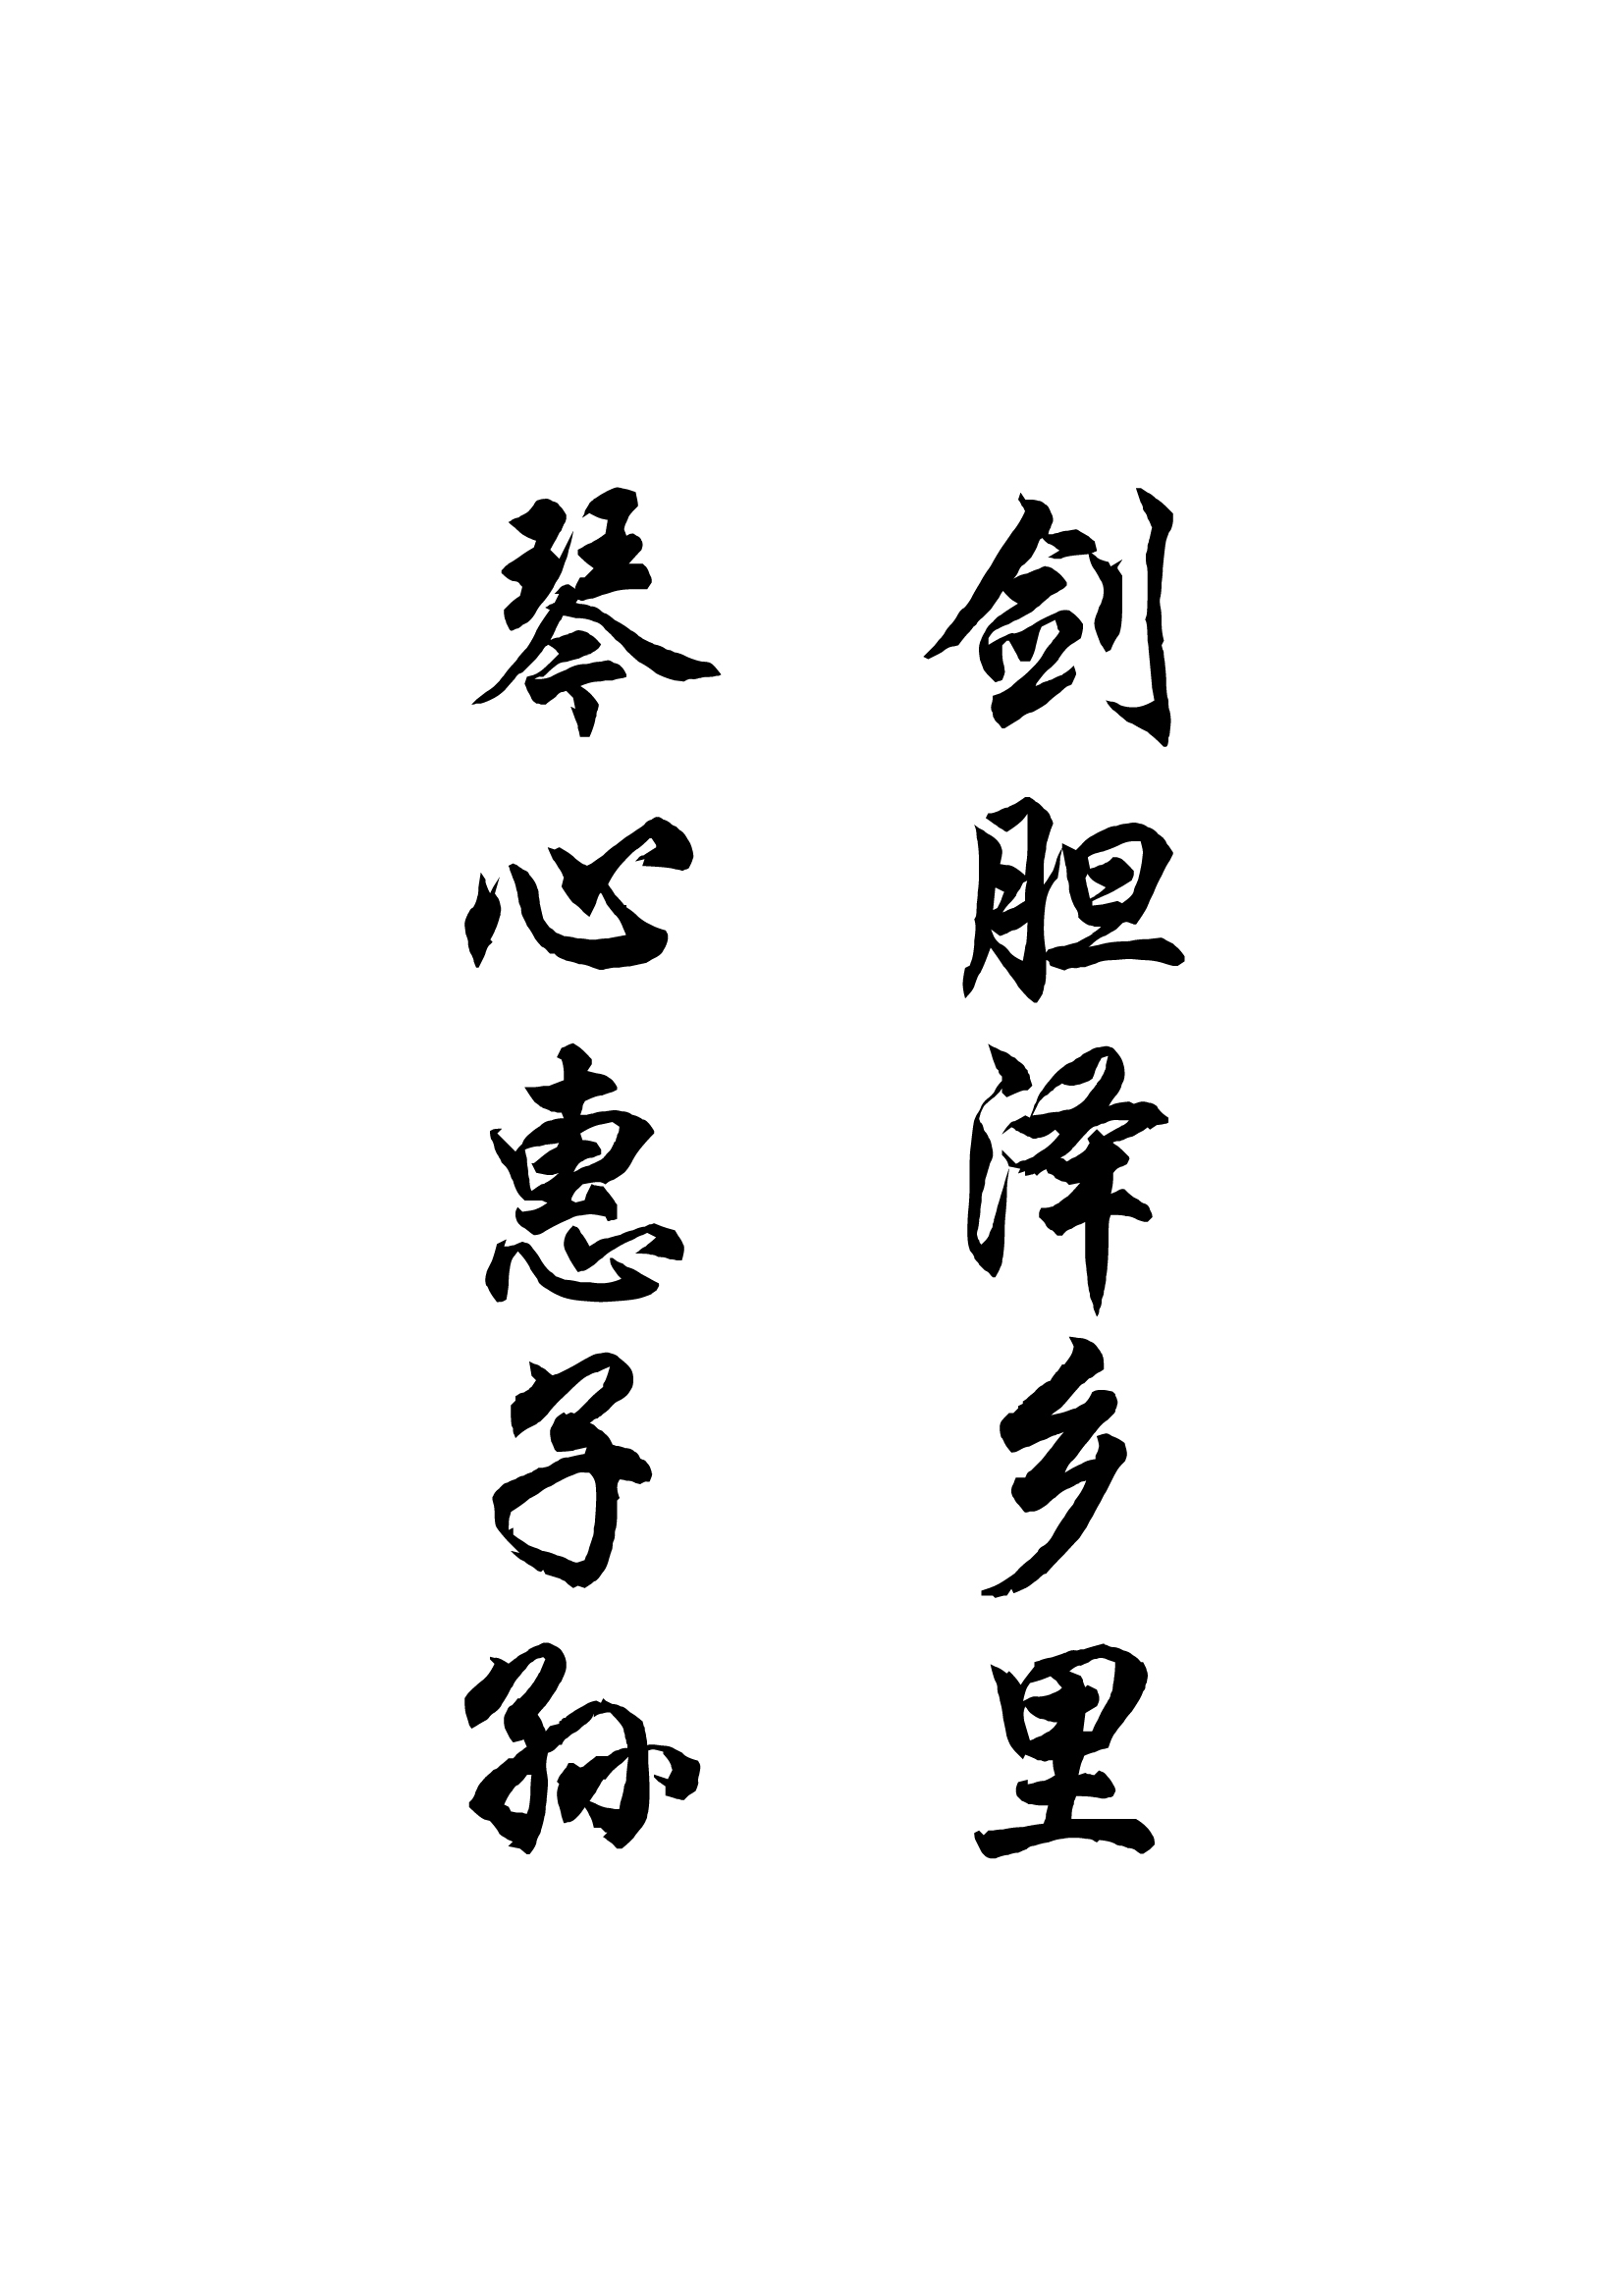 剑胆泽乡里
琴心惠子孙